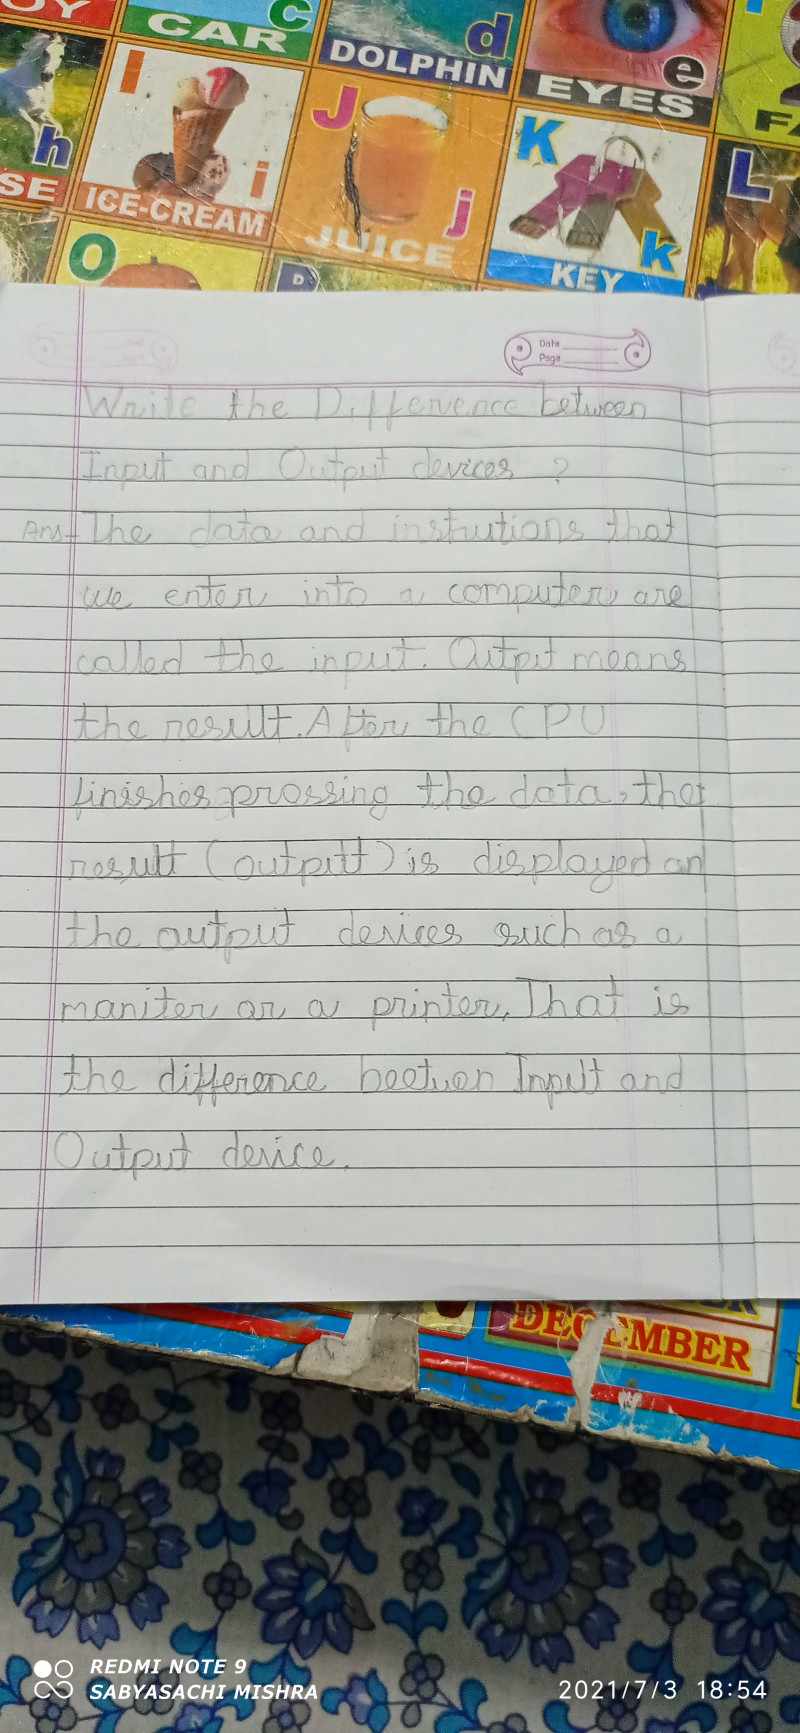 OY
C
CAR
d
DOLPHIN
e
EYES
h
SE
I
i
ICE-CREAM
J
j
JUICE
K
k
KEY
L
O
P
Date
Page
Write the Difference between
Input and Output devices ?
Ans- The data and instrutions that
we enter into a computer are
called the input. Output means
the result. After the CPU
finishes prossing the data, the
result (outputt) is displayed on
the output devices such as a
maniter or a printer. That is
the difference beetwen Input and
Output device.
DECEMBER
REDMI NOTE 9
SABYASACHI MISHRA
2021/7/3 18:54